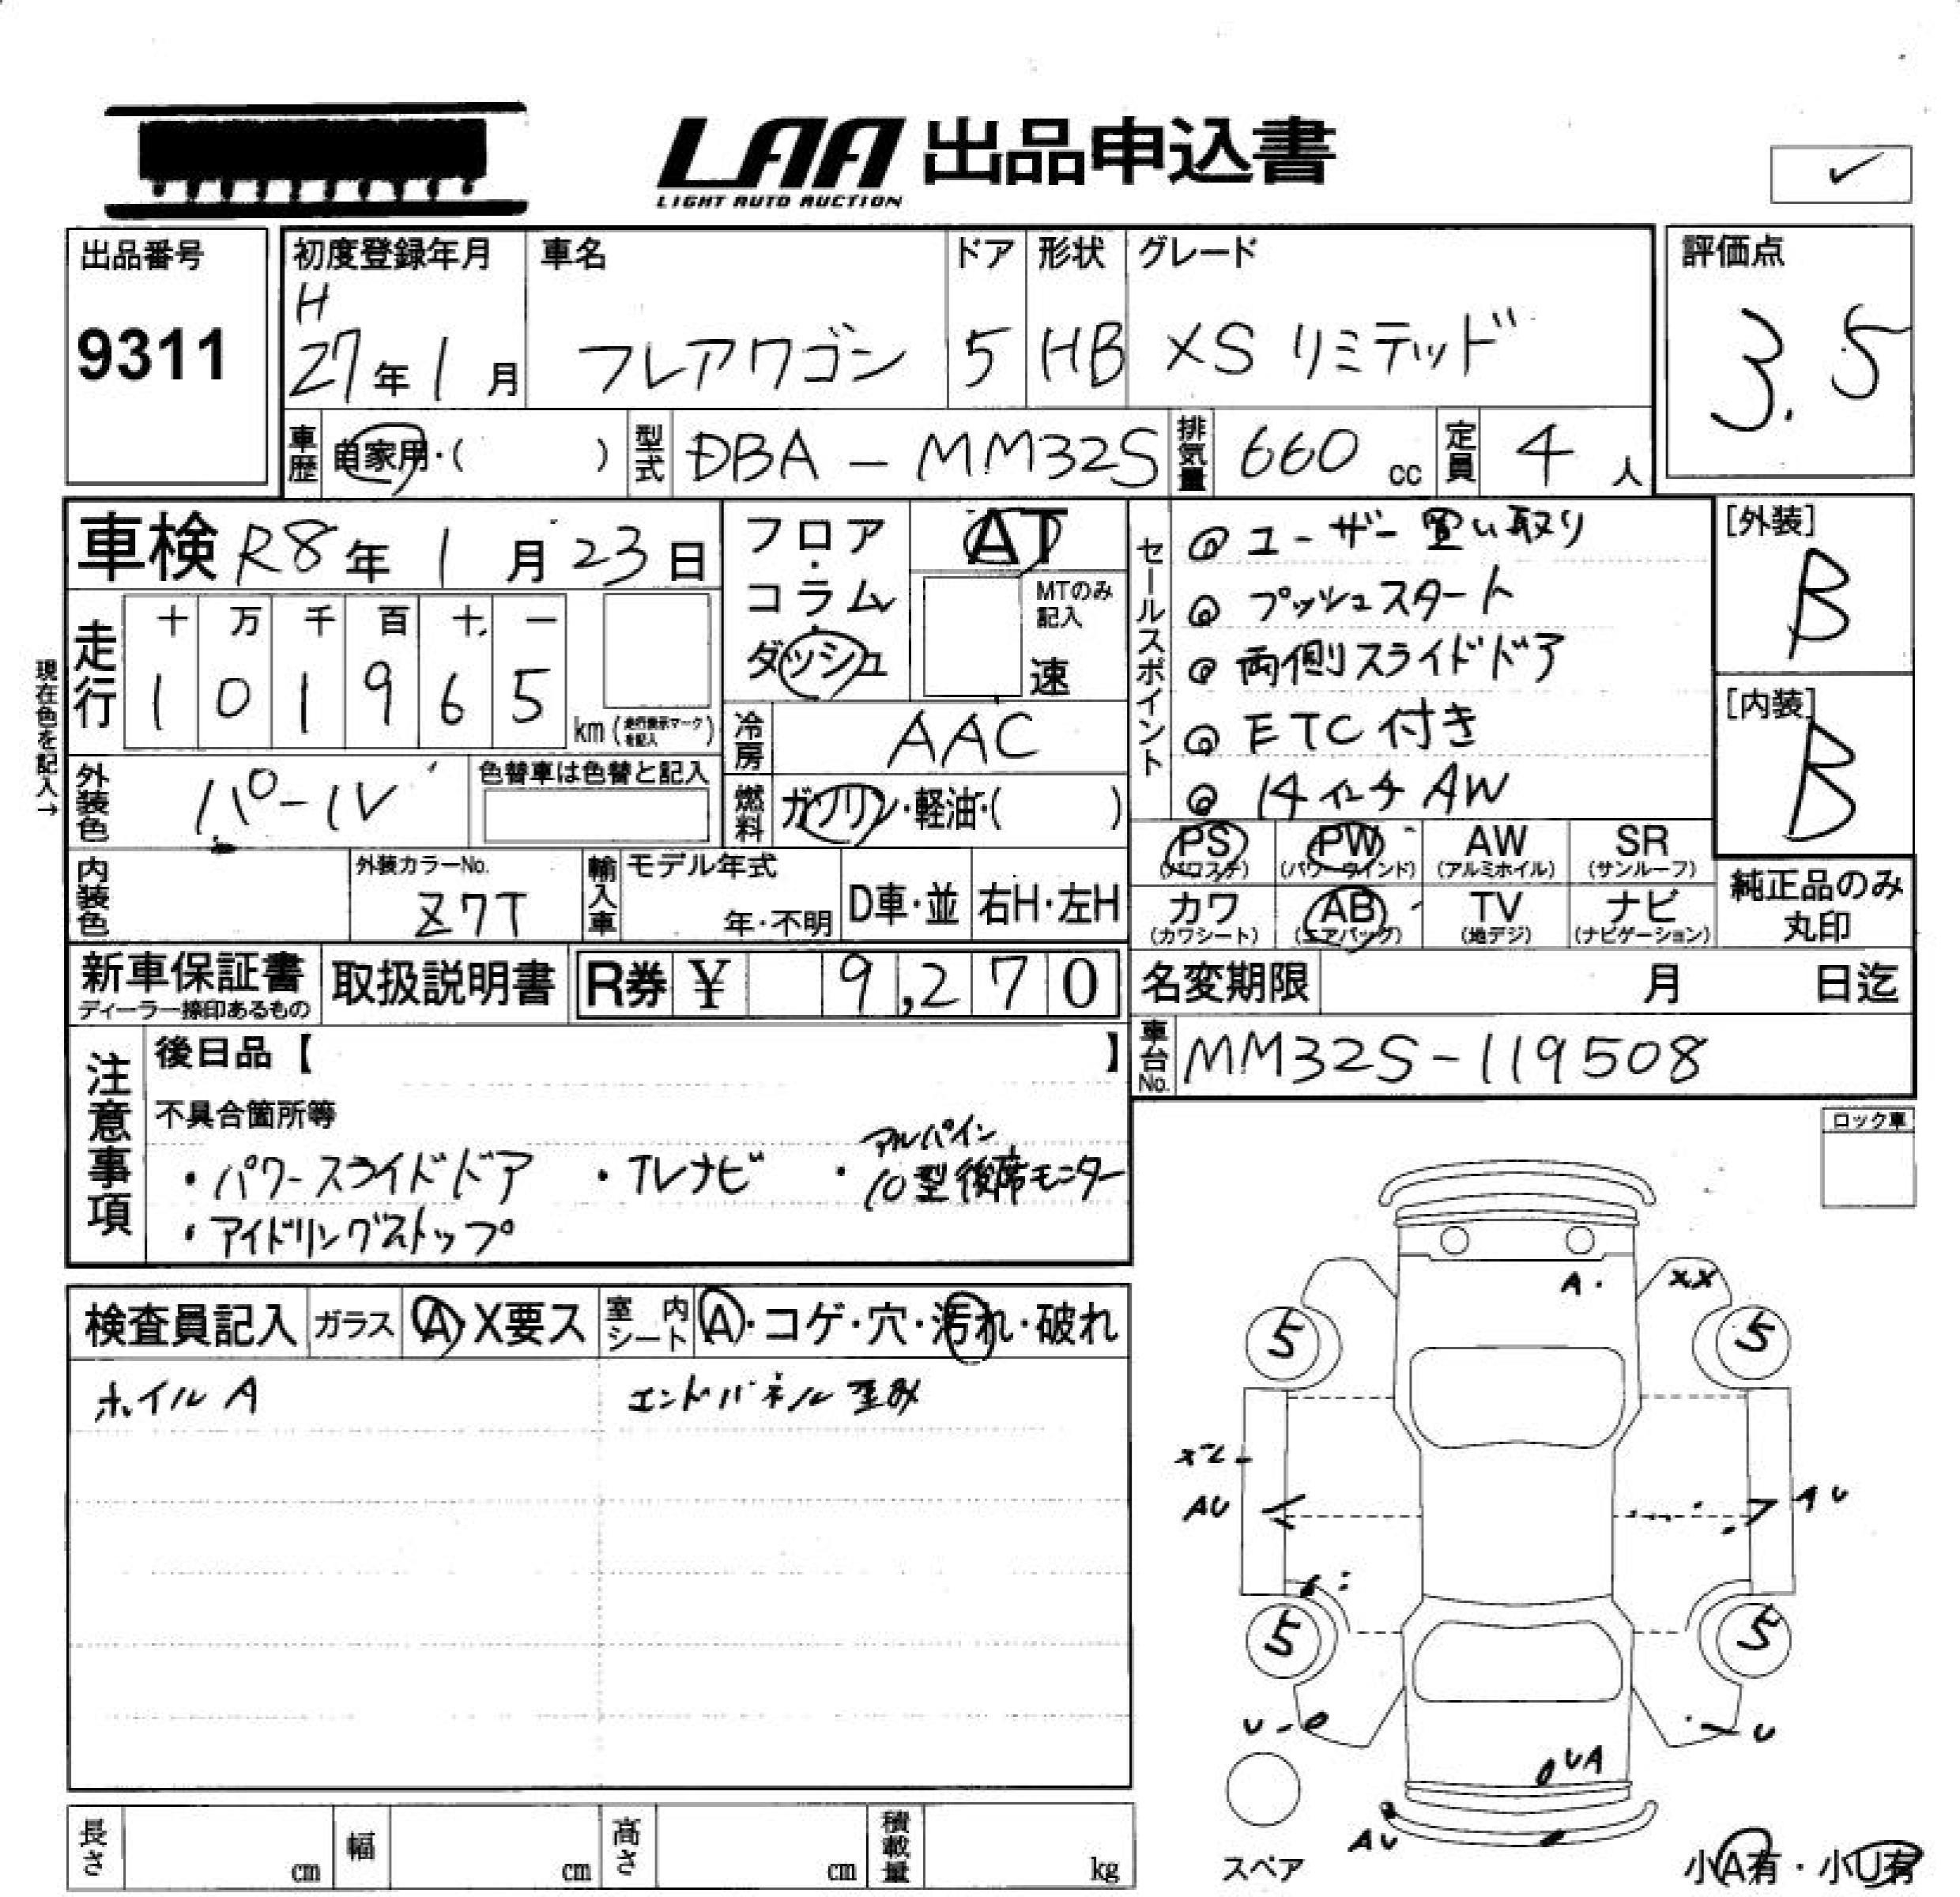 LAA 出品申込書
LIGHT AUTO AUCTION
✓
出品番号
9311
初度登録年月
H
27年1月
車名
フレアワゴン
ドア
5
形状
HB
グレード
XSリミテッド
評価点
3.5
車歴
自家用・( )
型式
DBA-MM32S
排気量
660 cc
定員
4 人
車検 R8年1月23日
フロア・コラム・ダッシュ
AT
MTのみ記入
速
現在色を記入→
走行
十 万 千 百 十 一
1 0 1 9 6 5
km (走行表示マークを記入)
冷房
AAC
外装色
パール
色替車は色替と記入
燃料
ガソリン・軽油・( )
内装色
外装カラーNo.
Z7T
輸入車
モデル年式
年・不明
D車・並
右H・左H
セールスポイント
@ ユーザー買い取り
@ プッシュスタート
@ 両側スライドドア
@ ETC付き
@ 14インチAW
[外装]
B
[内装]
B
PS (パワステ)
PW (パワーウインド)
AW (アルミホイル)
SR (サンルーフ)
カワ (カワシート)
AB (エアバッグ)
TV (地デジ)
ナビ (ナビゲーション)
純正品のみ丸印
新車保証書
ディーラー捺印あるもの
取扱説明書
R券 ¥ 9,270
名変期限 月 日迄
車台No.
MM32S-119508
注意事項
後日品【 】
不具合箇所等
・パワースライドドア ・TVナビ ・アルパイン10型後席モニター
・アイドリングストップ
ロック車
検査員記入
ガラス
A・X要ス
室内シート
A・コゲ・穴・汚れ・破れ
ホイルA
エンドパネル歪み
A
XX
5
5
AU
AU
5
5
U
U
UA
AU
スペア
小A有・小U有
長さ cm
幅 cm
高さ cm
積載量 kg